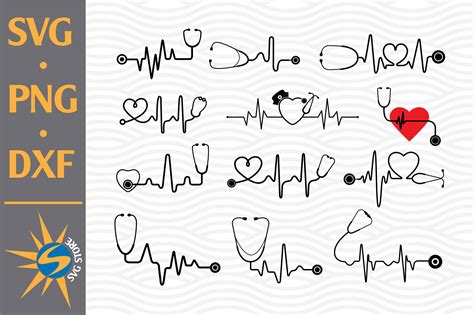 SVG
PNG
DXF
SVG STORE